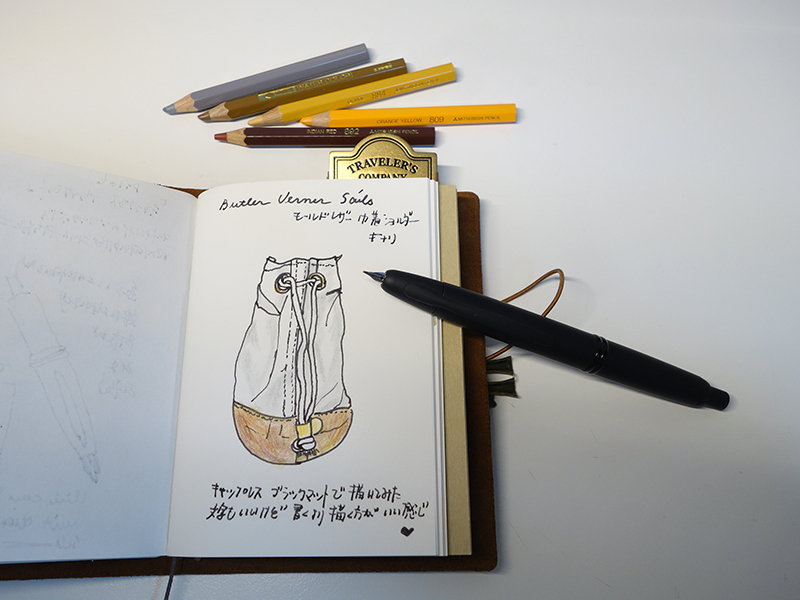 ORANGE YELLOW 609 MITSUBISHI PENCIL
INDIAN RED 692 MITSUBISHI PENCIL
TRAVELER'S
COMPANY
Butler Verner Sails
モールドレザー 巾着ショルダー
キナリ
キャップレス ブラックマットで 描いてみた
文字もいいけど 書くより 描く方が いい感じ